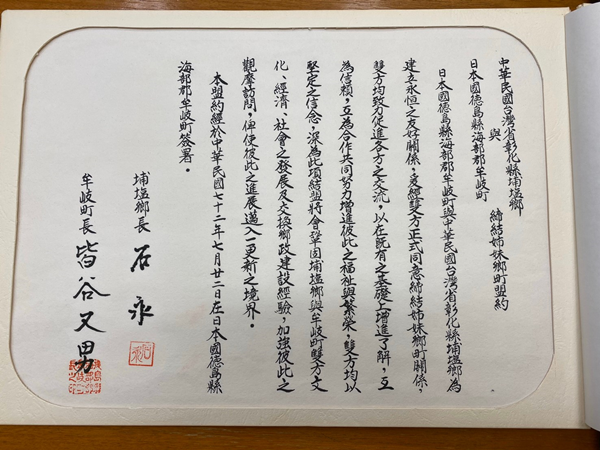 中華民國台灣省彰化縣埔塩鄉
與
日本國德島縣海部郡牟岐町
締結姉妹鄉町盟約
日本國德島縣海部郡牟岐町與中華民國台灣省彰化縣埔塩鄉為
建立永恒之友好關係,爰經雙方正式同意締結姉妹鄉町關係,
雙方均致力促進各方之交流,以在既有之基礎上增進了解,互
為信賴,互為合作共同努力增進彼此之福祉與繁榮,雙方均以
堅定之信念,深為此項結盟將會鞏固埔塩鄉與牟岐町雙方文
化、經濟、社會之發展及交換鄉政建設經驗,加強彼此之
觀摩訪問,俾使彼此之進展邁入一更新之境界。
本盟約經於中華民國七十二年七月廿二日在日本國德島縣
海部郡牟岐町簽署。
埔塩鄉長 石永
牟岐町長 皆谷又男